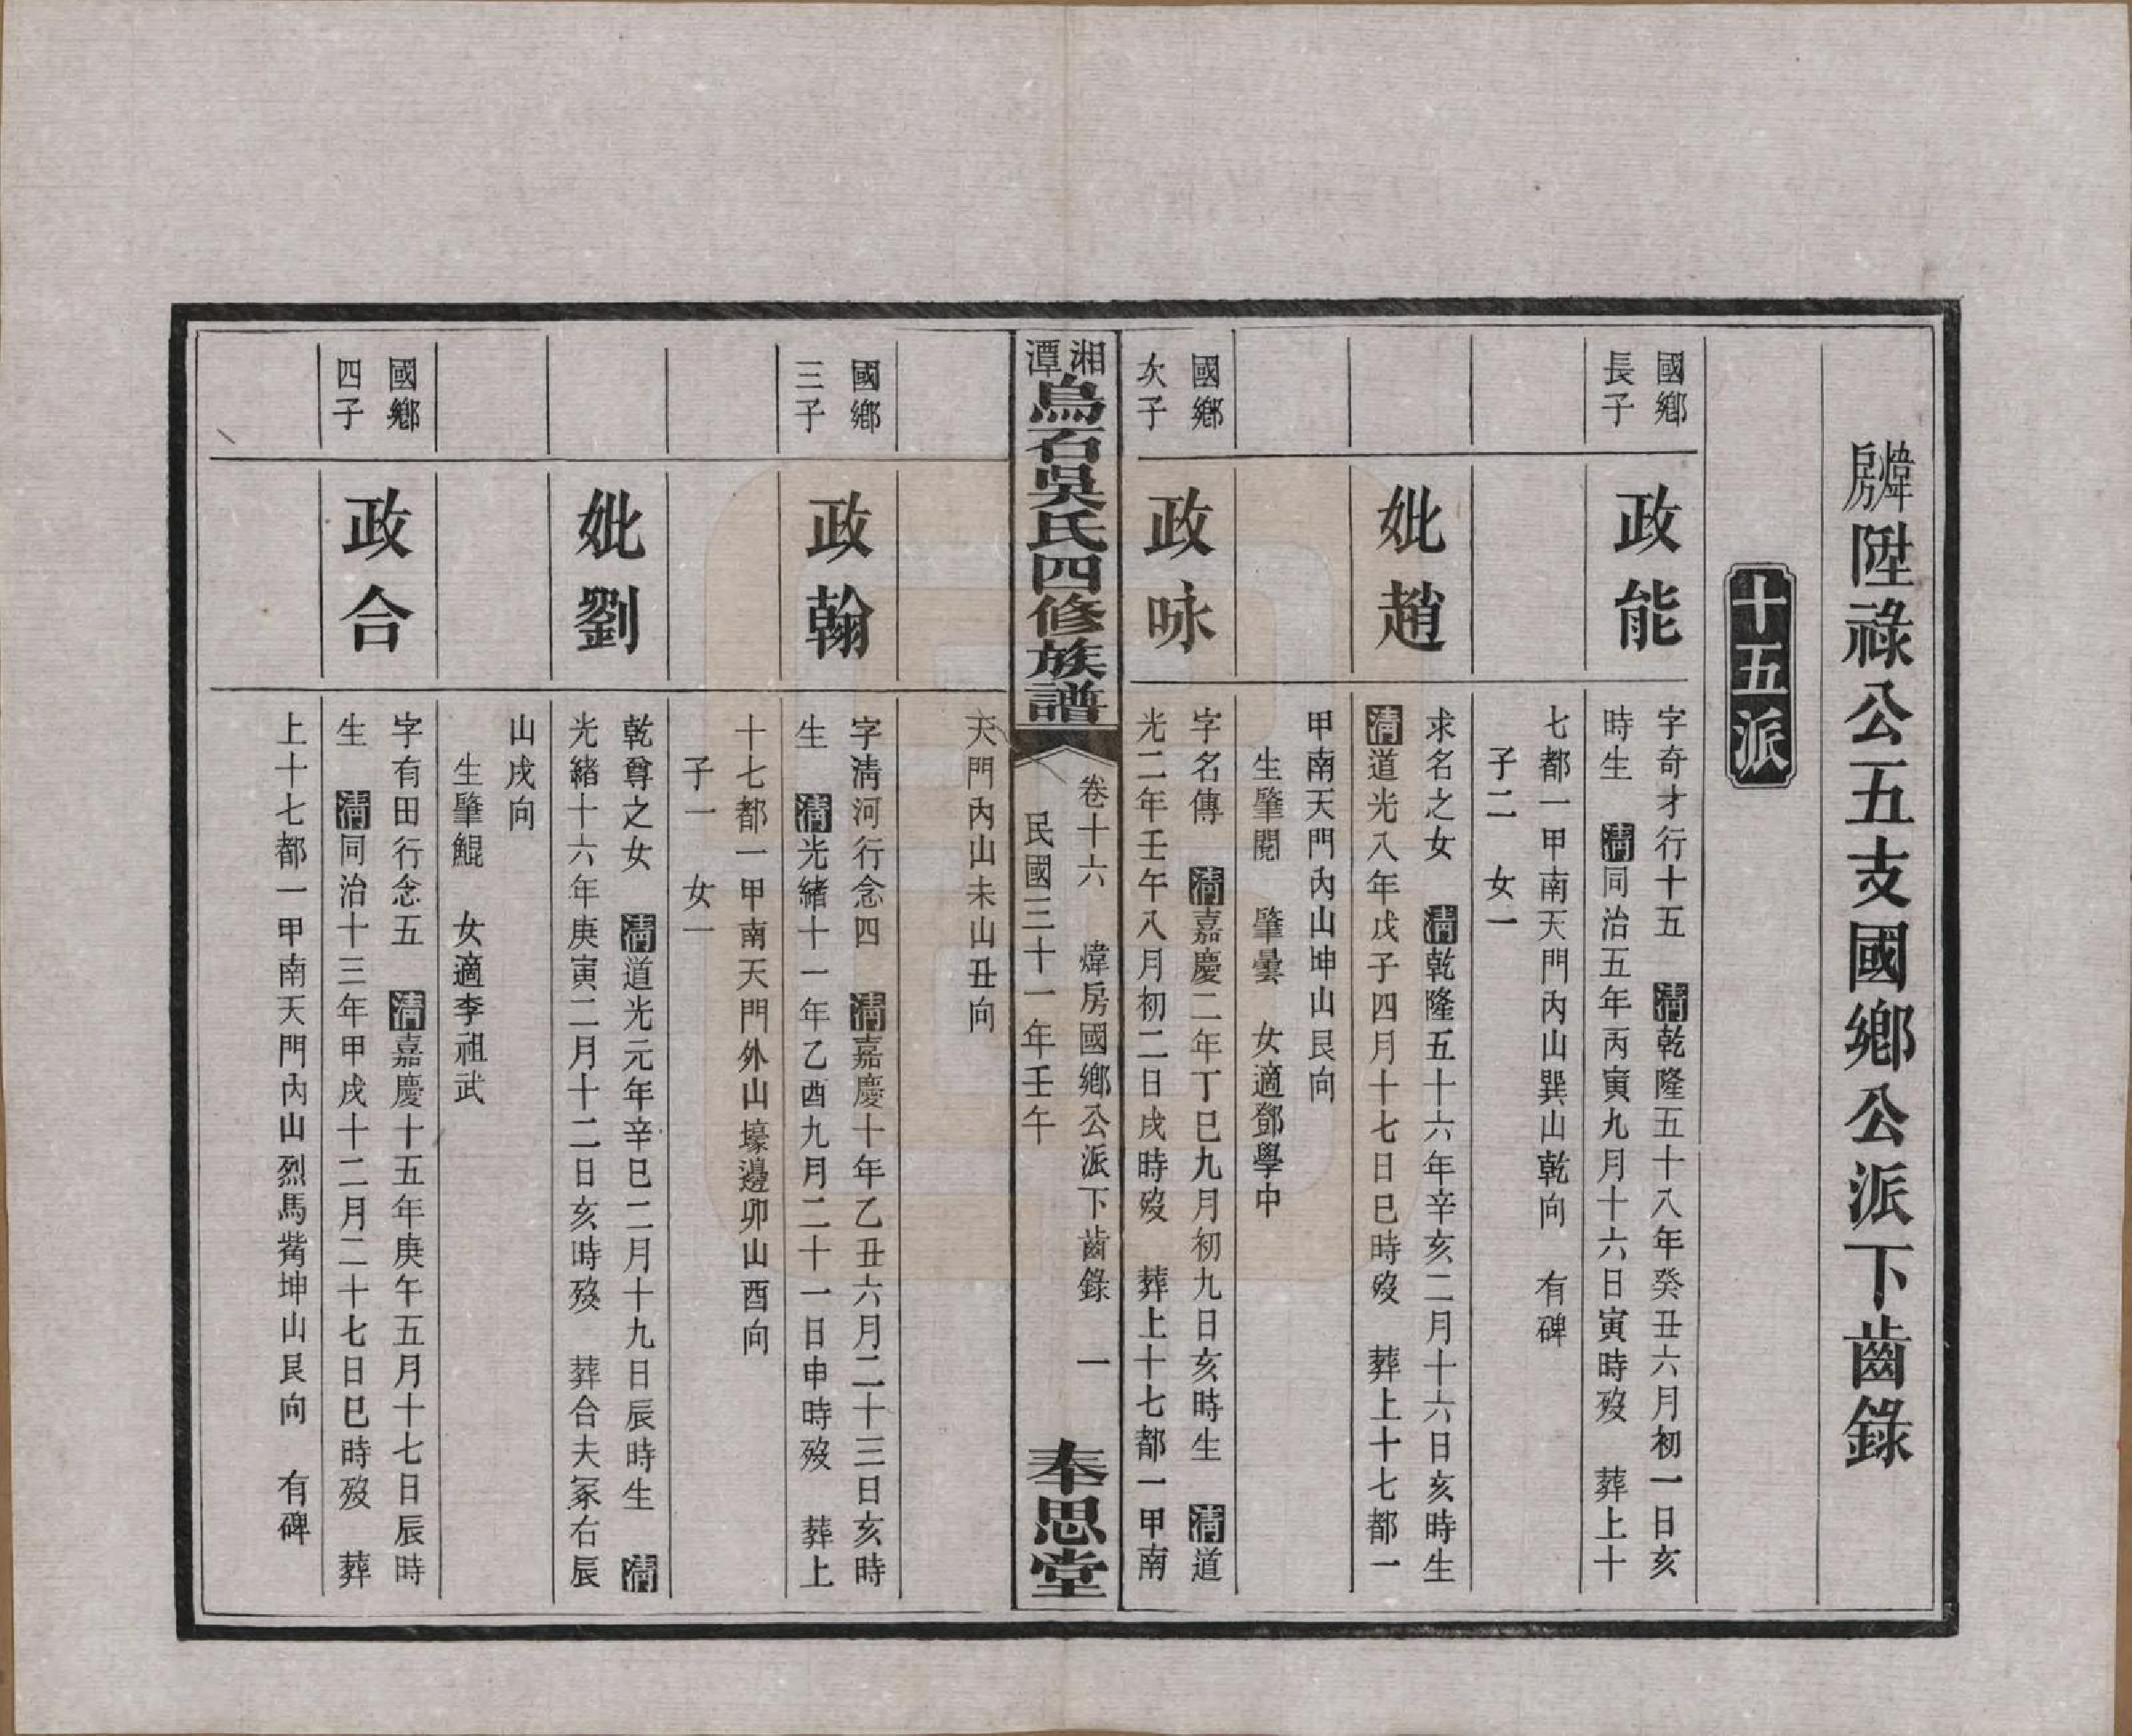 煒房陞祿公五支國鄉公派下齒錄
十五派
國鄉
長子
政能
字奇才行十五　清乾隆五十八年癸丑六月初一日亥
時生　清同治五年丙寅九月十六日寅時歿　葬上十
七都一甲南天門內山巽山乾向　有碑
子二　女一
妣趙
求名之女　清乾隆五十六年辛亥二月十六日亥時生
清道光八年戊子四月十七日巳時歿　葬上十七都一
甲南天門內山坤山艮向
生肇閱　肇曇　女適鄧學中
國鄉
次子
政咏
字名傳　清嘉慶二年丁巳九月初九日亥時生　清道
光二年壬午八月初二日戌時歿　葬上十七都一甲南
湘潭烏石吳氏四修族譜
卷十六　煒房國鄉公派下齒錄　一
民國三十一年壬午
奉思堂
天門內山未山丑向
國鄉
三子
政翰
字清河行念四　清嘉慶十年乙丑六月二十三日亥時
生　清光緒十一年乙酉九月二十一日申時歿　葬上
十七都一甲南天門外山壕邊卯山酉向
子一　女一
妣劉
乾尊之女　清道光元年辛巳二月十九日辰時生　清
光緒十六年庚寅二月十二日亥時歿　葬合夫冢右辰
山戌向
生肇鯤　女適李祖武
國鄉
四子
政合
字有田行念五　清嘉慶十五年庚午五月十七日辰時
生　清同治十三年甲戌十二月二十七日巳時歿　葬
上十七都一甲南天門內山烈馬嘴坤山艮向　有碑